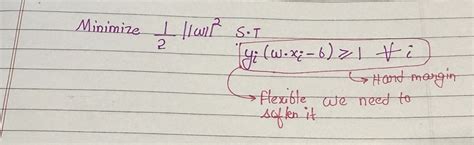 Minimize 1/2 ||w||² S.T
yi (w.xi - b) ≥ 1 ∀ i
→ Hard margin
→ Flexible we need to
soften it